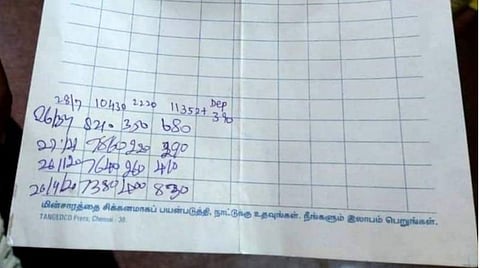 Dep
28/7 10430 2220 11352+ 390
8210 350 680
7860 220 390
7640 260 410
7380 400 830
மின்சாரத்தை சிக்கனமாகப் பயன்படுத்தி, நாட்டுக்கு உதவுங்கள். நீங்களும் இலாபம் பெறுங்கள்.
TANGEDCO Press, Chennai - 38